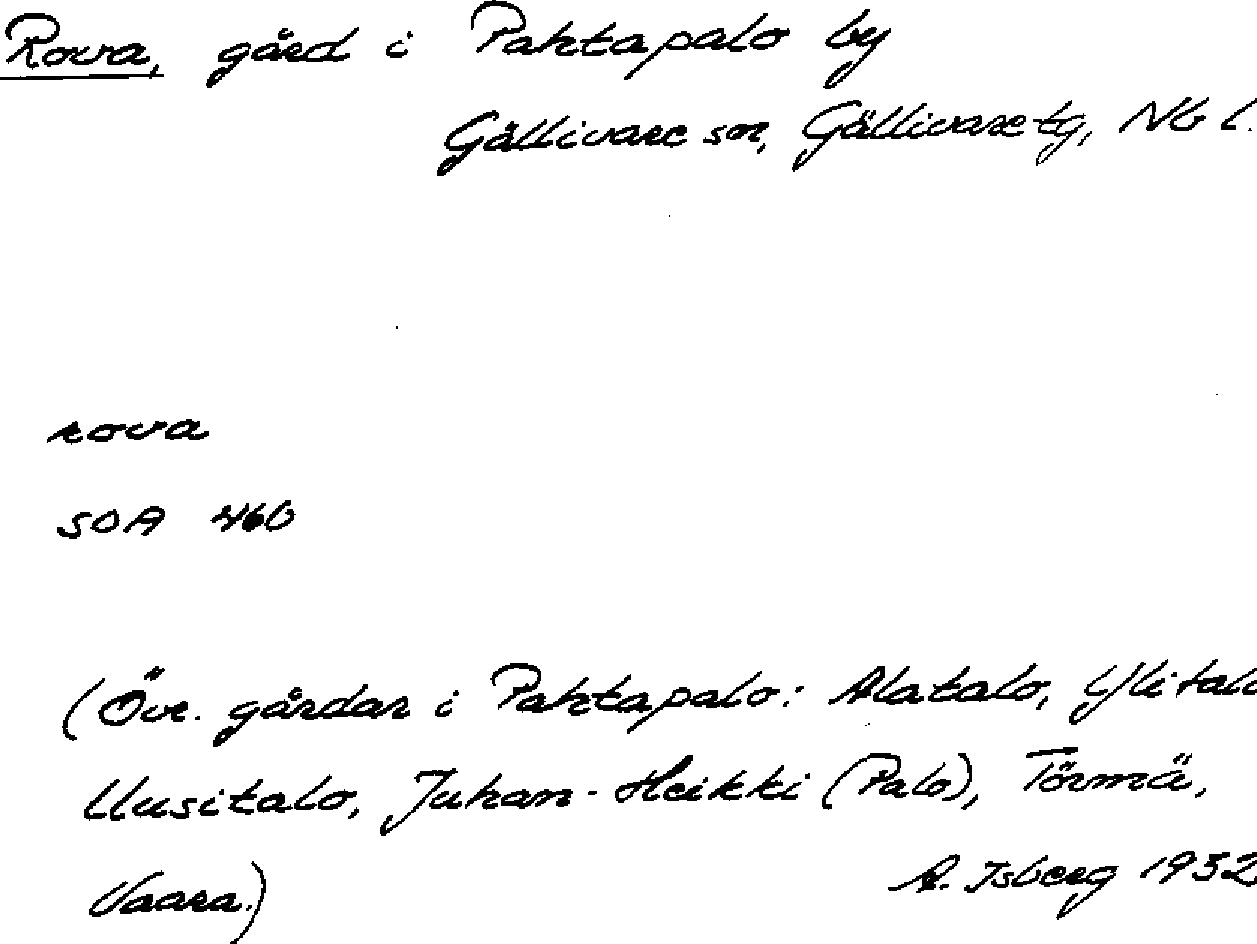 Rova, gård i Pahtapalo by
Gällivare sn, Gällivare tg, Nb l.
rova
SOA 460
(Öve. gårdar i Pahtapalo: Alatalo, Ylitalo
Uusitalo, Juhan-Heikki (Palo), Törmä,
Vaara.)
A. Isberg 1932